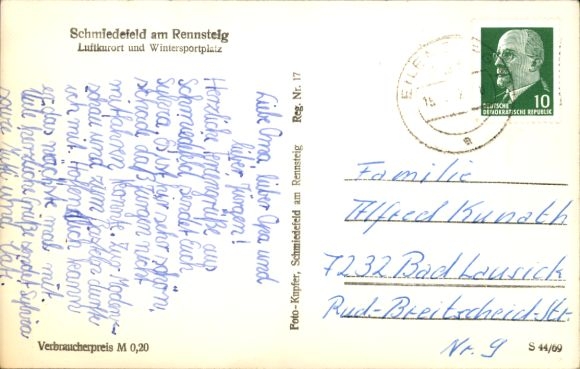 Schmiedefeld am Rennsteig
Luftkurort und Wintersportplatz
Liebe Oma, lieber Opa und
lieber Jürgen!
Herzliche Feriengrüße aus
Schmiedefeld sendet Euch
Silvia. Es ist hier sehr schön,
schade daß Jürgen nicht
mitfahren konnte. Zur Boden-
und zum
ich mit. Hoffentlich kann
er das nächste mal mit.
Viele herzliche Grüße sendet Silvia
sowie und
Verbraucherpreis M 0,20
Foto-Kupfer, Schmiedefeld am Rennsteig Reg. Nr. 17
EILEN
DEUTSCHE
DEMOKRATISCHE REPUBLIK
10
Familie
Alfred Kunath
7232 Bad Lausick
Rud-Breitscheid-Str.
Nr. 9
S 44/69